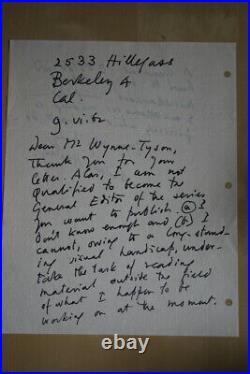 2533 Hillegass
Berkeley 4
Cal.
9.vi.62
Dear Mr Wynne-Tyson,
Thank you for your
letter. Alas, I am not
qualified to become the
General Editor of the series
you want to publish. (a) I
don't know enough and (b) I
cannot, owing to a long-stand-
ing visual handicap, under-
take the task of reading
material outside the field
of what I happen to be
working on at the moment.
© 138department